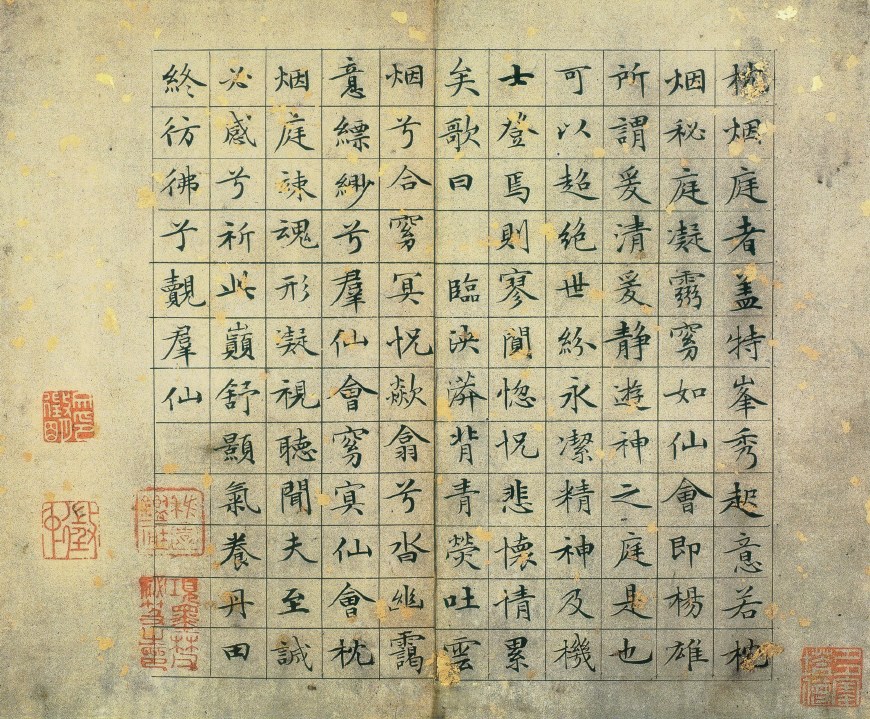 枕烟庭者盖特峯秀起意若枕
烟秘庭凝霛窅如仙會即楊雄
所謂爰清爰静遊神之庭是也
可以超絶世紛永潔精神及機
士登焉則寥閴惚怳悲懷情累
矣歌曰　臨泱漭背青熒吐雲
烟兮合窅冥怳欻翕兮沓幽靄
意縹緲兮羣仙會窅冥仙會枕
烟庭竦魂形凝視聴聞夫至誠
必感兮祈此巔舒顥氣養丹田
終彷彿兮覿羣仙
項墨林父
秘笈之印